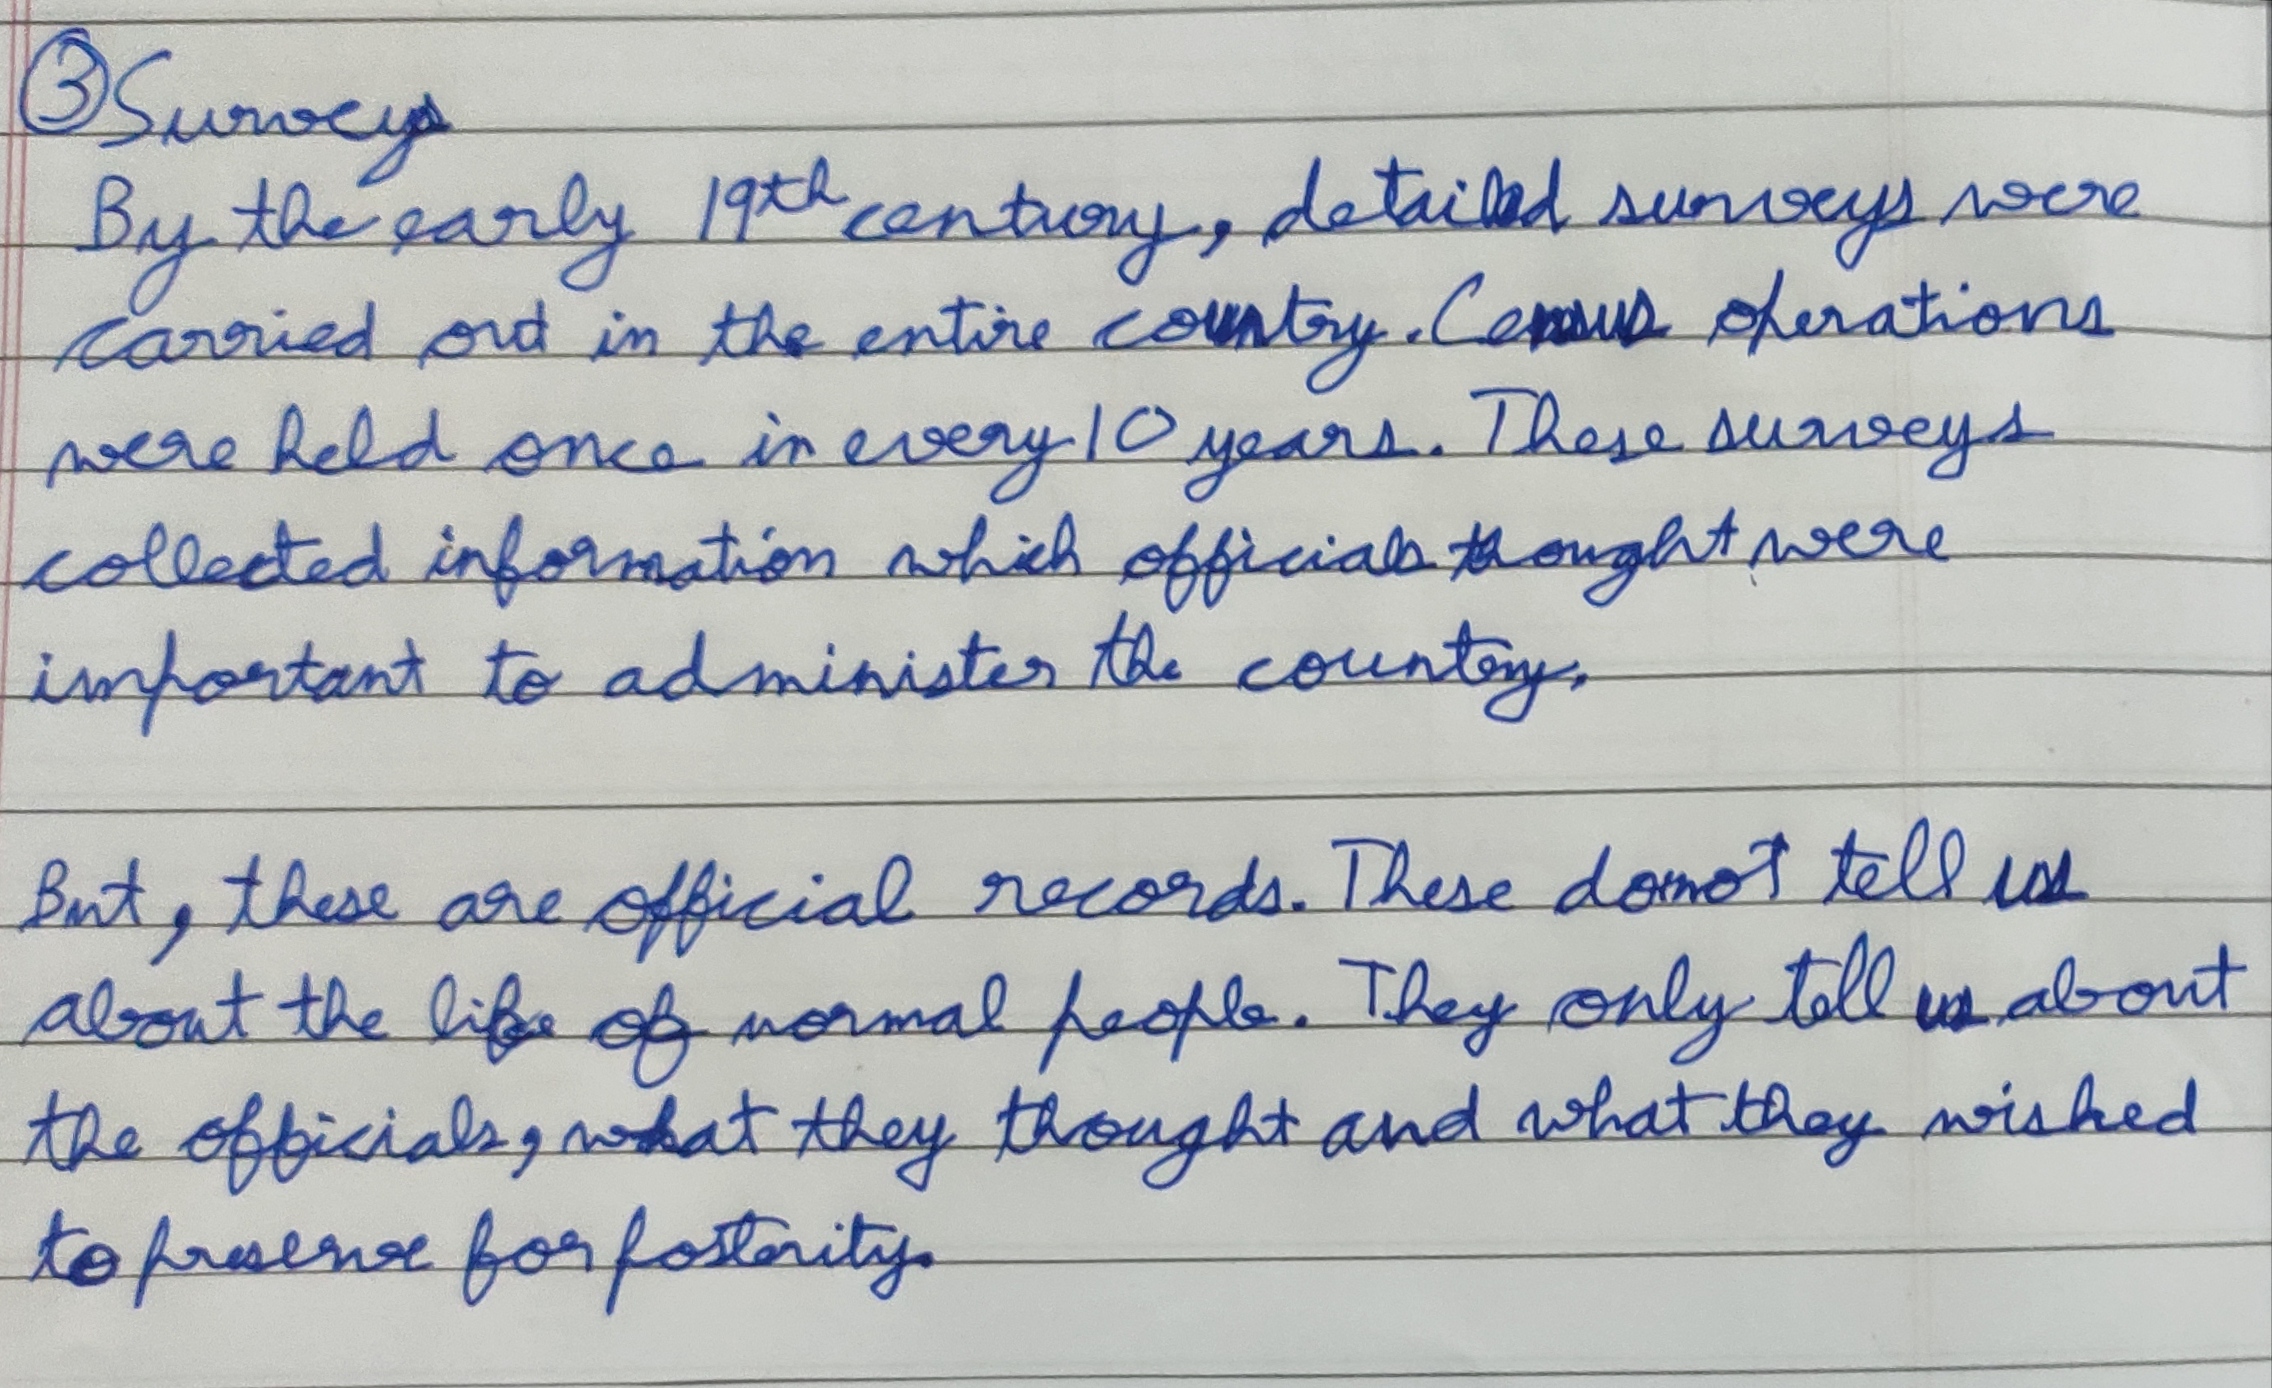 ③ Surveys
By the early 19th century, detailed surveys were
carried out in the entire country. Census operations
were held once in every 10 years. These surveys
collected information which officials thought were
important to administer the country.
But, these are official records. These donot tell us
about the life of normal people. They only tell us about
the officials, what they thought and what they wished
to preserve for posterity.